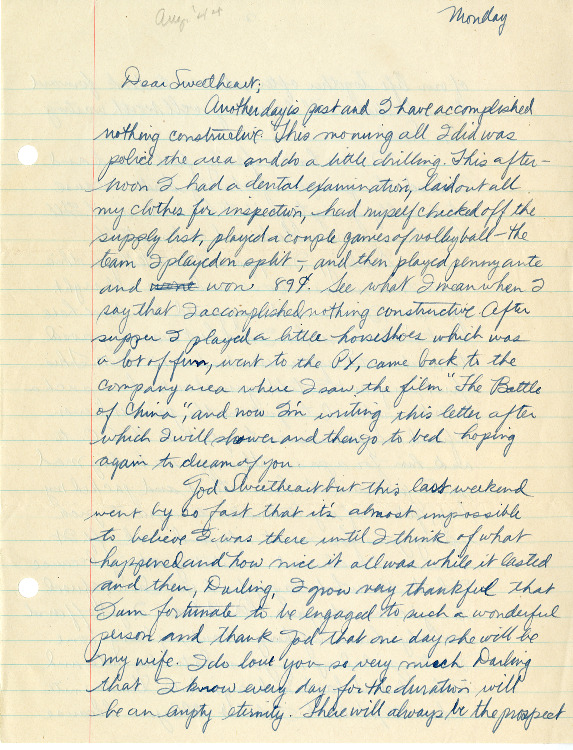 Monday
Dear Sweetheart;
Another day is past and I have accomplished
nothing constructive. This morning all I did was
police the area and do a little drilling. This after-
noon I had a dental examination, laid out all
my clothes for inspection, had myself checked off the
supply list, played a couple games of volleyball - the
team I played on split -, and then played penny ante
and went won 89¢. See what I mean when I
say that I accomplished nothing constructive. After
supper I played a little horseshoes which was
a lot of fun, went to the PX, came back to the
company area where I saw the film "The Battle
of China", and now I'm writing this letter after
which I will shower and then go to bed hoping
again to dream of you.
God Sweetheart but this last weekend
went by so fast that it's almost impossible
to believe I was there until I think of what
happened and how nice it all was while it lasted
and then, Darling, I grow very thankful that
I am fortunate to be engaged to such a wonderful
person and thank God that one day she will be
my wife. I do love you so very much Darling
that I know every day for the duration will
be an empty eternity. There will always be the prospect